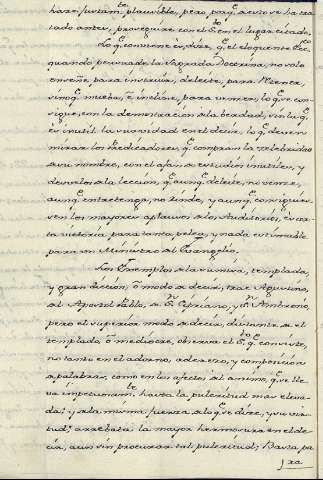 plausible, pero porq̃ de esto se ha tra
tado antes, proseguire con el S.to en el lugar citado.
Lo q̃ conviene es, dize, q̃ el eloquente Ec
quando persuade la Sagrada Doctrina, no solo
enseñe, para instruir, deleite, para
sinoq̃ mueba, é incline, para vencer, lo q̃ se con
sigue, con la demostracion de la berdad, sin la q̃
es inutil la suavidad en el decir, lo q̃ deven
mirar los Predicadores, q̃ compran la celebridad
de su nombre, con el afán de estudios inutiles, y
de la lección, q̃ aunq̃ deleite, no venza,
aunq̃ entretenga, no rinde, y aunq̃ consiguie
sen los mayores aplausos de los Auditorios, es cor
ta victoria, para tanta pelea, y nada estimable
para un Ministro del Evangelio.
Los Exemplos de la sumisa, templada,
y gran dicción, ó modo de decir, trae Agustino,
al Apostol Pablo, S.n Cipriano, y S.n Ambrosio,
pero el superior modo de decir, distante de el
templado, ó mediocre, observa el S.to q̃ consiste,
no tanto en el adorno, aderezo, y composición
de palabras, como en los afectos del animo, q̃ se lle
va impetuosam.te hasta la pulcritud mas eleva
da; y de la misma fuerza de lo q̃ se dize, y su vir
tud; arrebata la mayor hermosura en el de
cir, aun sin procurar tal pulcritud; Basta pa
ra